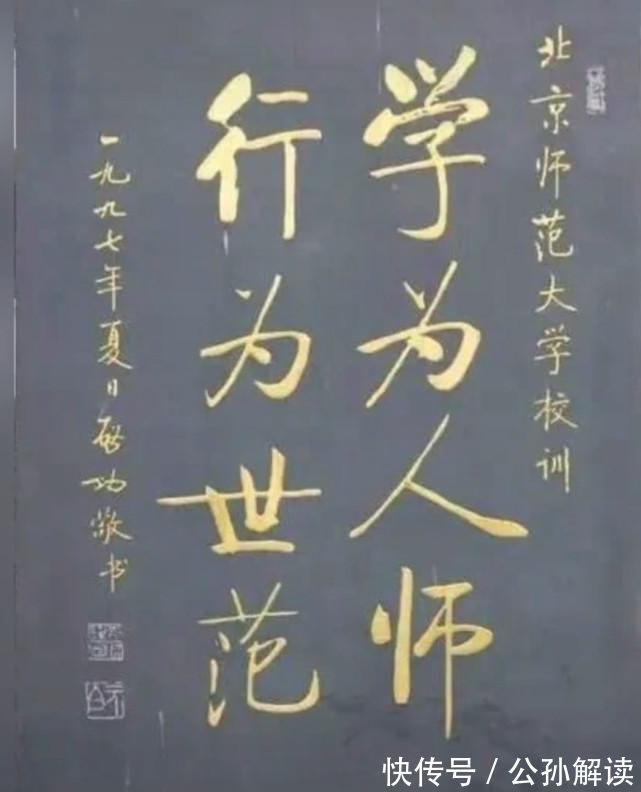 北京师范大学校训
学为人师
行为世范
一九九七年夏日启功敬书
快传号 / 公孙解读